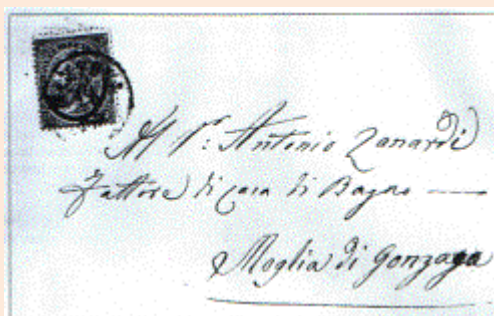 Al Sr: Antonio Zanardi
Fattore di casa di Bagno —
Moglia di Gonzaga